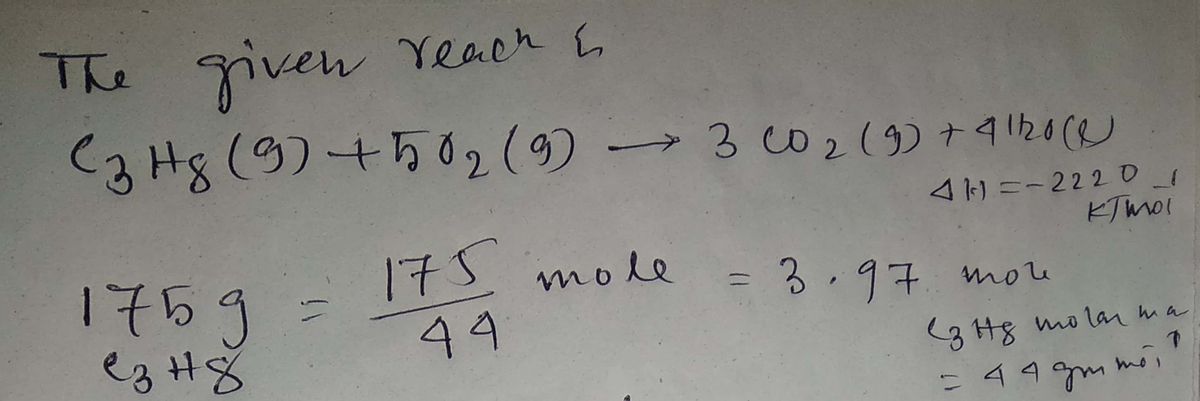 The given reach is
C3H8(g) + 5O2(g) → 3CO2(g) + 4H2O(l)
ΔH = -2220 KJmol-1
175g C3H8 = 175/44 mole = 3.97 mole
C3H8 molar ma
= 44 gm mol-1